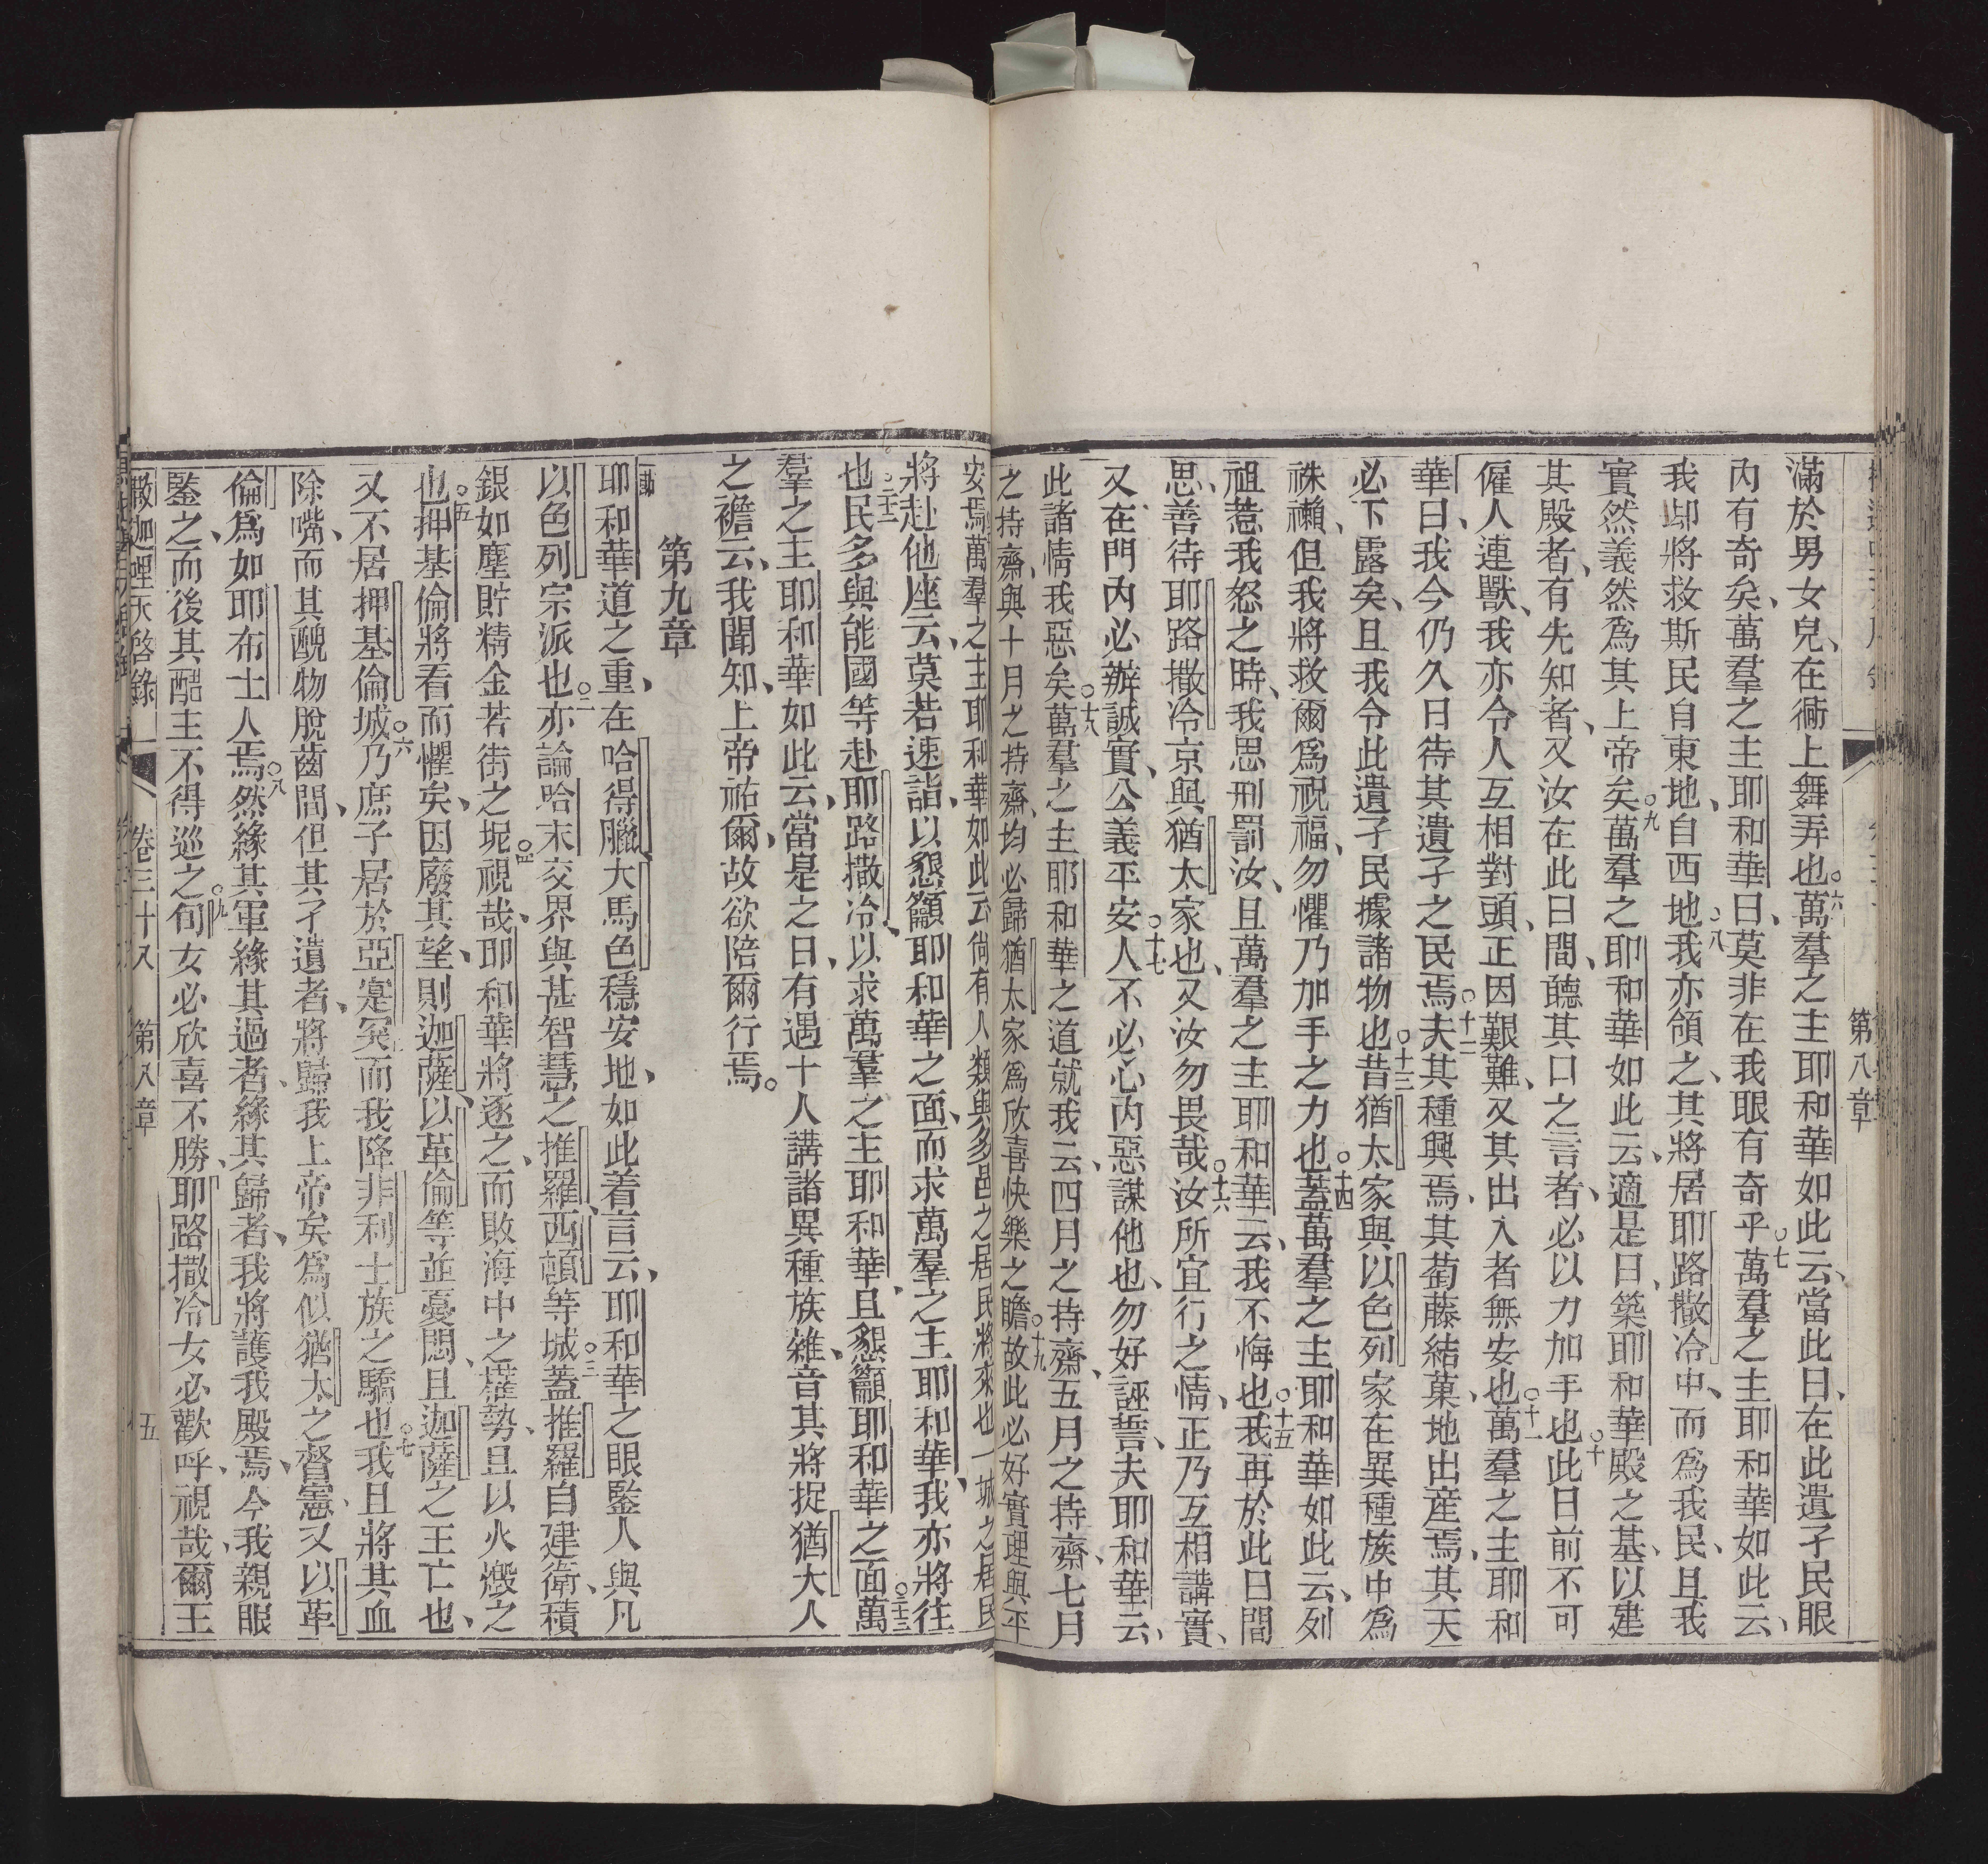 第八章
滿於男女兒、在衕上舞弄也○六萬羣之主耶和華如此云、當此日、在此遺孑民眼
內有奇矣、萬羣之主耶和華曰、莫非在我眼有奇乎○七萬羣之主耶和華如此云、
我卽將救斯民自東地、自西地○八我亦領之、其將居耶路撒冷中、而為我民、且我
實然義然為其上帝矣○九萬羣之耶和華如此云、適是日、築耶和華殿之基、以建
其殿者、有先知者、又汝在此日間、聽其口之言者、必以力加手也○十此日前不可
僱人連獸、我亦令人互相對頭、正因艱難、又其出入者無安也○十一萬羣之主耶和
華曰、我今仍久日待其遺孑之民焉○十二夫其種興焉、其萄藤結菓、地出產焉、其天
必下露矣、且我令此遺孑民據諸物也○十三昔猶太家與以色列家在異種族中為
祩𧝞、但我將救爾為祝福、勿懼乃加手之力也○十四蓋萬羣之主耶和華如此云、列
祖惹我怒之時、我思刑罰汝、且萬羣之主耶和華云、我不悔也○十五我再於此日間
思、善待耶路撒冷京與猶太家也、又汝勿畏哉○十六汝所宜行之情、正乃互相講實、
又在門內必辦誠實、公義平安○十七人不必心內惡謀他也、勿好誣誓、夫耶和華云、
此諸情我惡矣○十八萬羣之主耶和華之道就我云、四月之持齋、五月之持齋、七月
之持齋、與十月之持齋、均必歸猶太家為欣喜快樂之瞻○十九故此必好實理與平
安焉○二十萬羣之主耶和華如此云、尙有人類與多邑之居民將來也一城之居民
將赴他座云、莫若速詣、以懇籲耶和華之面、而求萬羣之主耶和華、我亦將往
也○二十二民多與能國等赴耶路撒冷、以求萬羣之主耶和華、且懇籲耶和華之面○二十三萬
羣之主耶和華如此云、當是之日、有遇十人講諸異種族雜、音其將捉猶大人
之襜云、我聞知、上帝祐爾、故欲陪爾行焉。
第九章
耶和華道之重、在哈得臘、大馬色穩安地、如此着言云、耶和華之眼鑒人與凡
以色列宗派也○二亦論哈末交界與甚智慧之推羅、西頓等城○三蓋推羅自建衛、積
銀如塵貯精金若街之坭○四視哉、耶和華將逐之、而敗海中之權勢、且以火燬之
也○五押基倫將看而懼矣、因廢其望、則迦薩、以革倫等並憂悶、且迦薩之王亡也、
又不居押基倫城○六乃庶子居於亞寔突而我降非利士族之驕也○七我且將其血
除嘴、而其醜物脫齒間、但其孑遺者、將歸我上帝矣為似猶太之督憲又以革
倫為如耶布士人焉○八然緣其軍緣其過者、緣其歸者、我將護我殿焉、今我親眼
鑒之、而後其酷主不得巡之○九旬女必欣喜不勝、耶路撒冷女必歡呼、視哉、爾王
撒迦哩亞啓錄 卷三十八 第八章 五